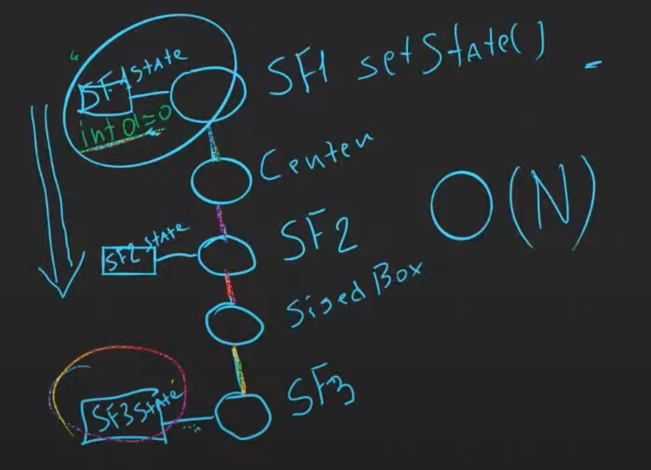 SF1 State
SF1 setState()
int a=0
Center
SF2 State
SF2
O(N)
Sized Box
SF3 State
SF3